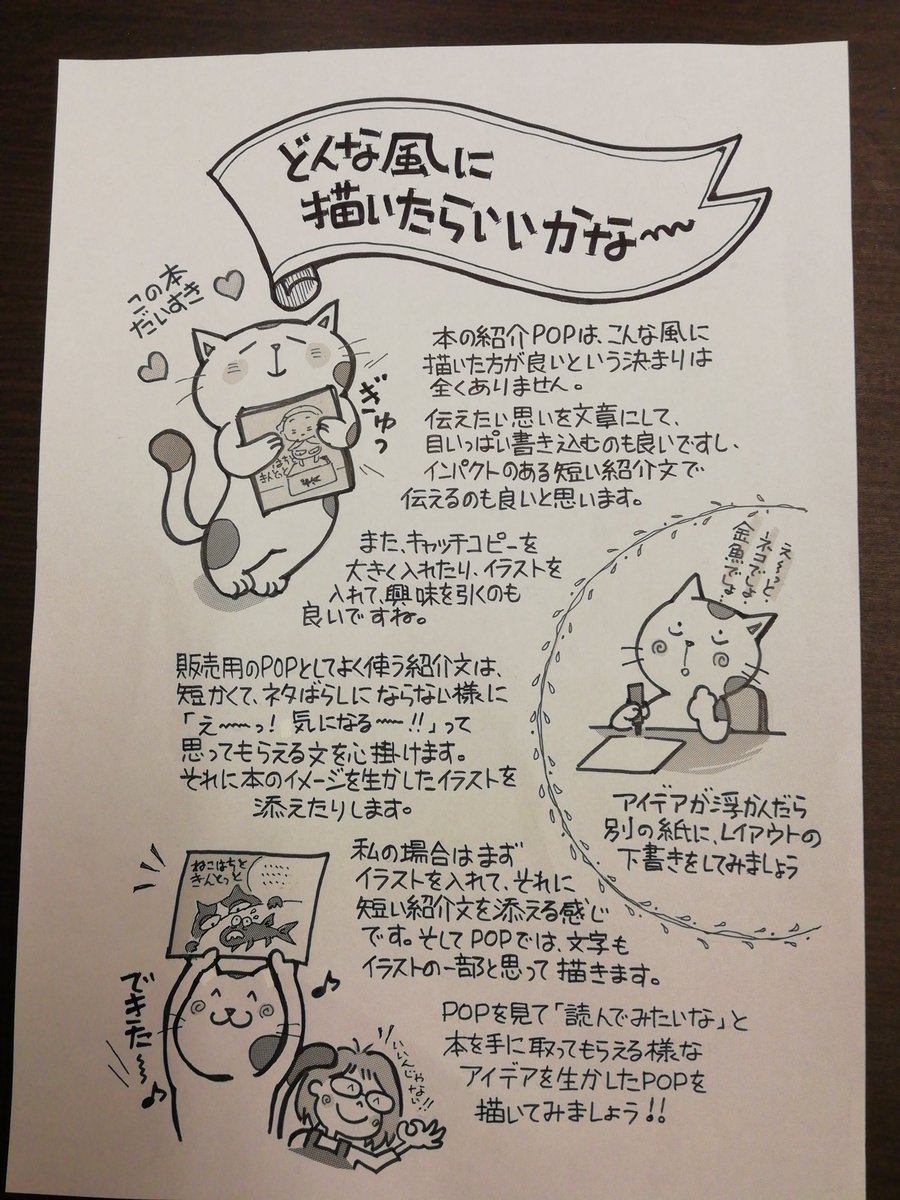 どんな風に
描いたらいいかな〜
この本
だいすき
ぎゅっ
本の紹介POPは、こんな風に
描いた方が良いという決まりは
全くありません。
伝えたい思いを文章にして、
目いっぱい書き込むのも良いですし、
インパクトのある短い紹介文で
伝えるのも良いと思います。
また、キャッチコピーを
大きく入れたり、イラストを
入れて、興味を引くのも
良いですね。
え〜っと、
ネコでしょ、
金魚でしょ、
販売用のPOPとしてよく使う紹介文は、
短かくて、ネタばらしにならない様に
「え〜〜っ!気になる〜!!」って
思ってもらえる文を心掛けます。
それに本のイメージを生かしたイラストを
添えたりします。
アイデアが浮かんだら
別の紙に、レイアウトの
下書きをしてみましょう
ねこはちと
きんとっと
できた〜
私の場合はまず
イラストを入れて、それに
短い紹介文を添える感じ
です。そしてPOPでは、文字も
イラストの一部と思って描きます。
いいんじゃ
ない!!
POPを見て「読んでみたいな」と
本を手に取ってもらえる様な
アイデアを生かしたPOPを
描いてみましょう!!